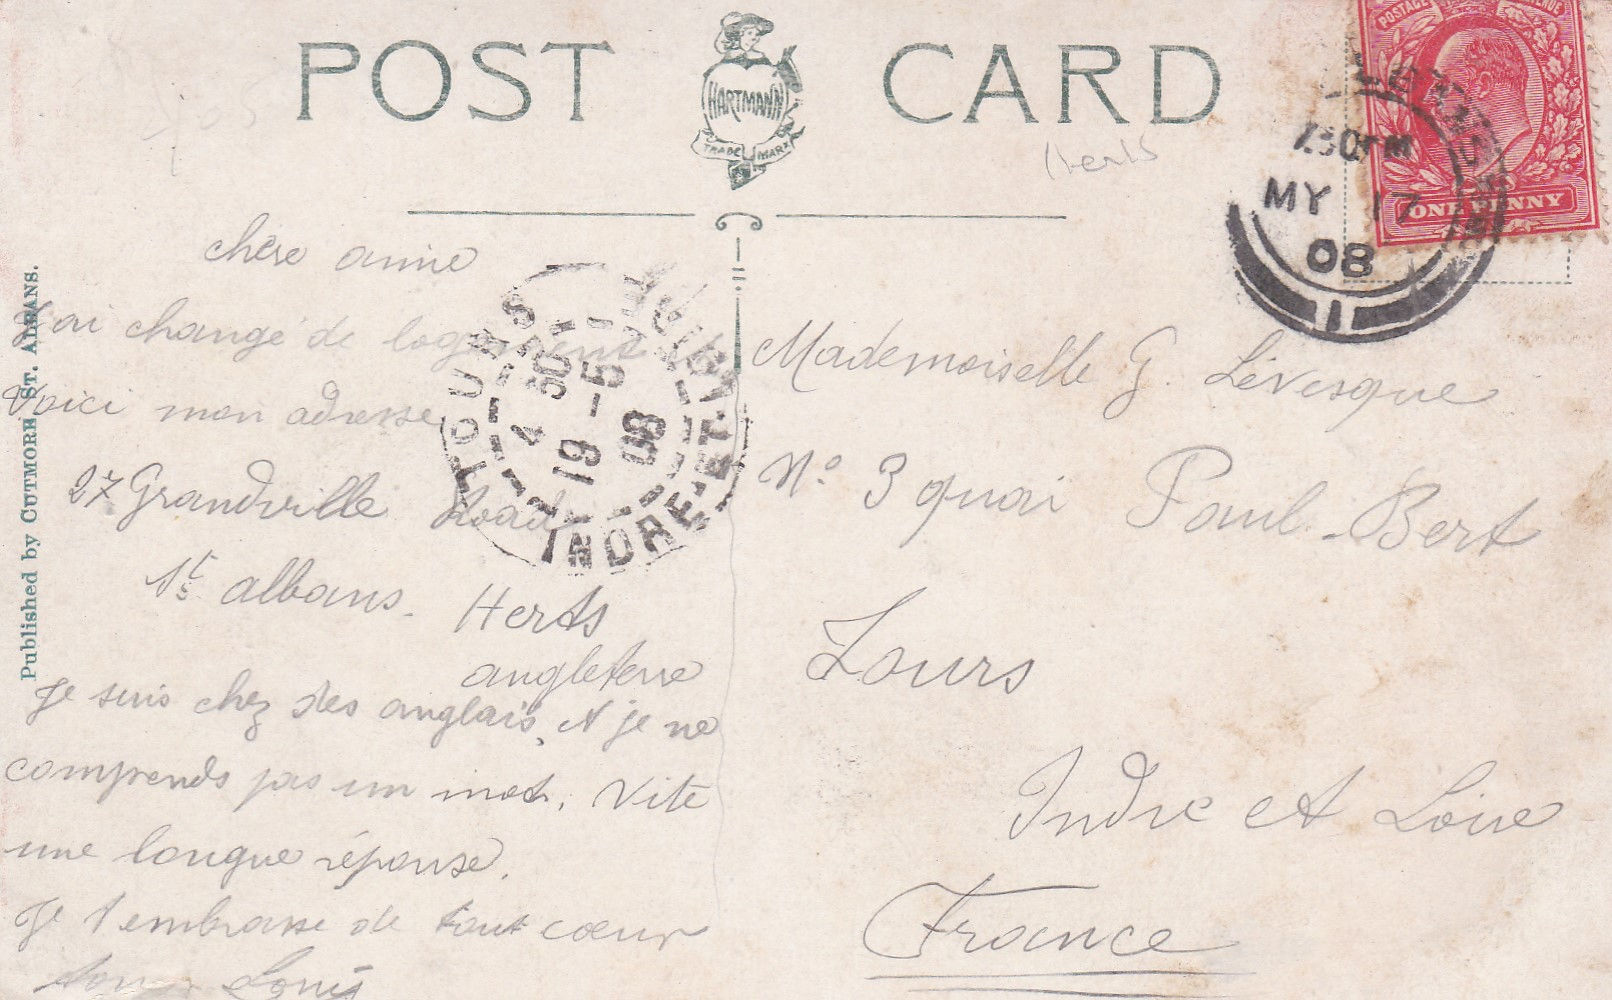 POST CARD
HARTMANN
TRADE MARK
Herts
POSTAGE REVENUE
ONE PENNY
7.30PM
MY 17
08
1
TOURS
4 30
19 - 5
08
INDRE-ET-
Published by CUTMORE, ST. ALBANS.
chère amie
J'ai changé de logement et
Voici mon adresse
27 Grandville Road
St albans. Herts
angleterre
Je suis chez des anglais, et je ne
comprends pas un mot. Vite
une longue réponse.
Je t'embrasse de tout coeur
Louis
Mademoiselle G. Lévesque
No. 3 quai Paul-Bert
Tours
Indre et Loire
France